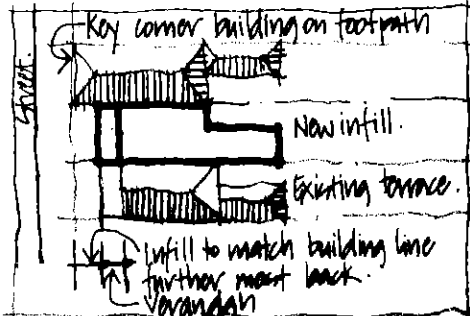 Key corner building on footpath
Street.
New infill.
Existing terrace.
Infill to match building line
further most back.
Verandah